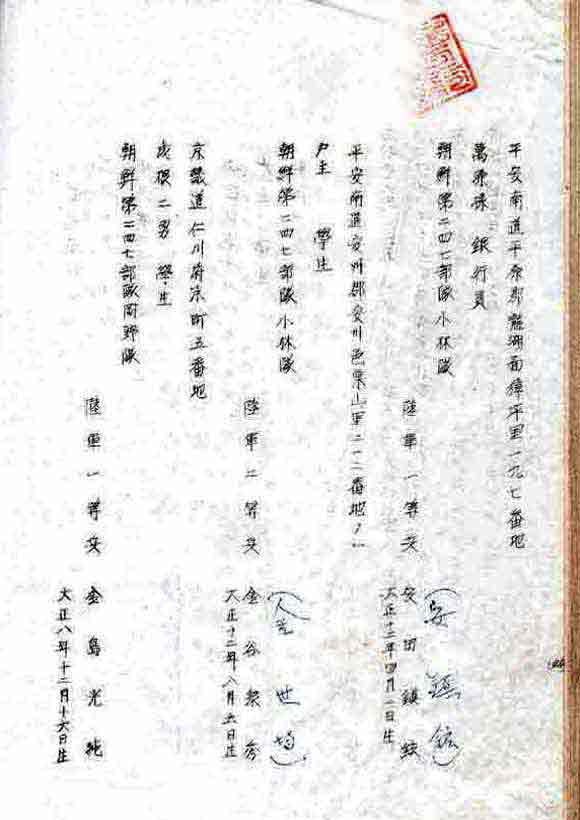 平安南道平原郡龍湖面樟坪里一九七番地
萬 孫 銀行員
朝鮮第二四七部隊小林隊
陸軍一等兵
安田鎮鉉
大正十二年四月二日生
平安南道安州郡安州邑栗山里二一二番地ノ一
戸主 學生
朝鮮第二四七部隊小林隊
陸軍二等兵
金谷 秀
大正十二年八月五日生
世均
京畿道仁川府京町五番地
成根二男 學生
朝鮮第二四七部隊岡野隊
陸軍一等兵
金島光純
大正八年十二月十六日生